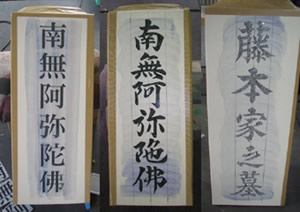 南無阿弥陀佛
南無阿弥陀佛
藤本家之墓